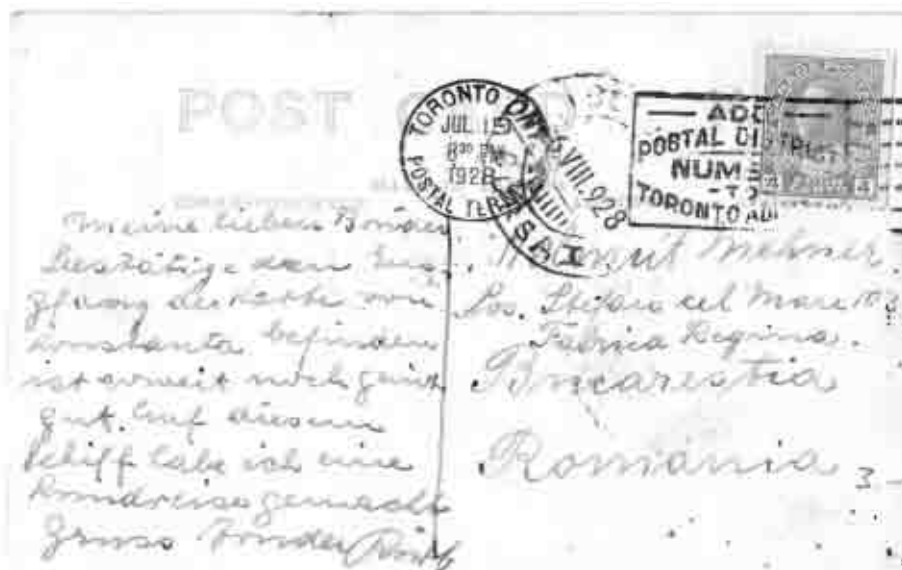 POST
TORONTO ONT
JUL 15
8 30 PM
1928
POSTAL TERM
VIII.928
ADD
POSTAL DISTRICT
NUM
TO
TORONTO AD
Meine lieben Bruder
Bestätige den Em-
pfang der Karte von
Konstanta befinden
ist soweit noch ganz
gut. Auf diesem
Schiff habe ich eine
Rundreise gemacht
Gruss Bruder
Helmut Mehner
Sos. Stefan cel Mare 103
Fabrica Regina.
Bucarestia
România
3